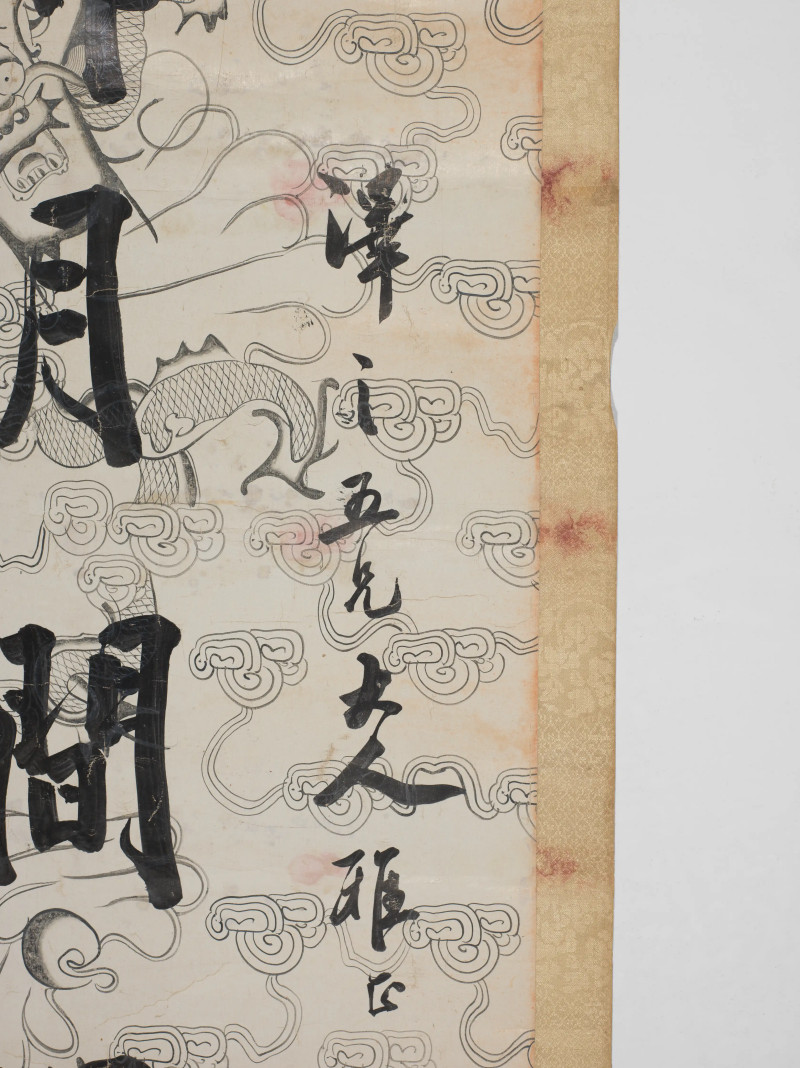 澤之五兄大人雅正
月間